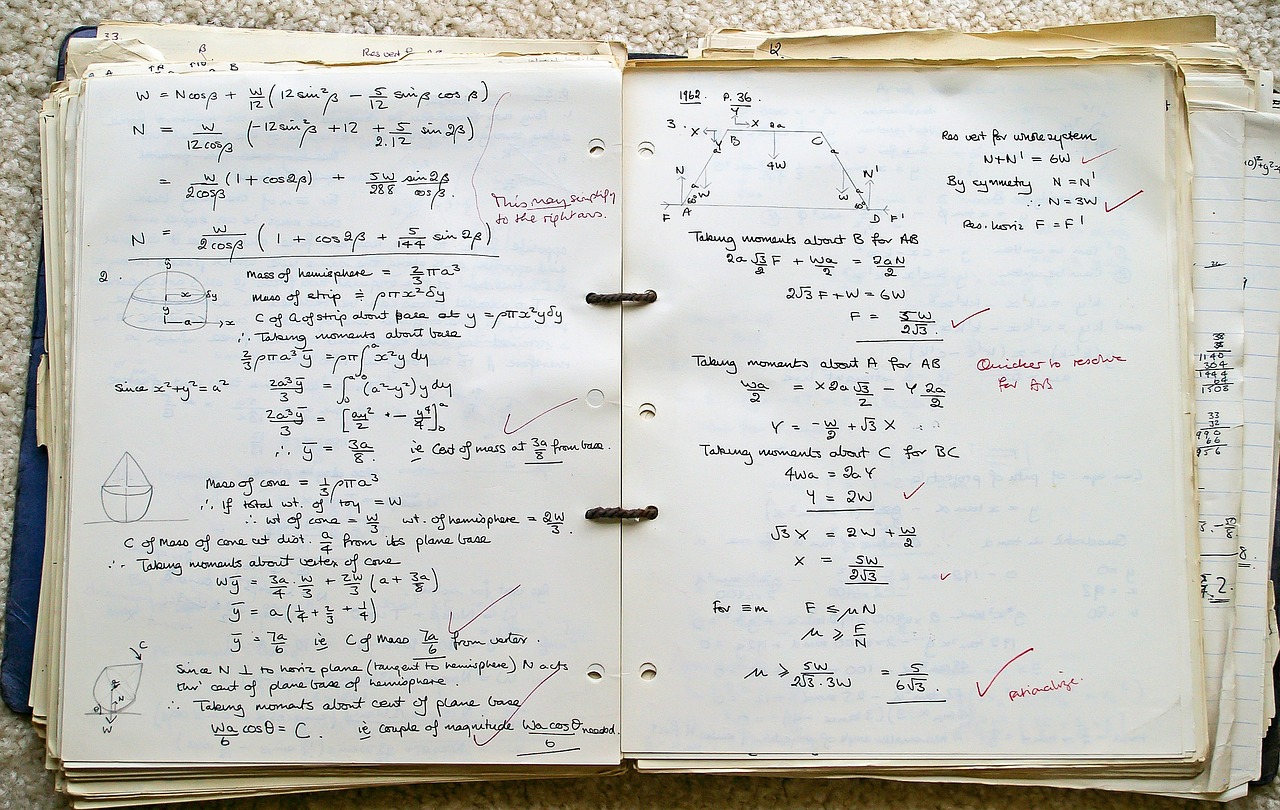 33.
β
Res vert
B
W = Ncosβ + W/12 (12sin²β − 5/12 sinβ cosβ)
N = W/12cosβ (−12sin²β + 12 + 5/2.12 sin2β)
= W/2cosβ (1 + cos2β) + 5W/288 sin2β/cosβ.
This may simplify
to the right ans.
N = W/2cosβ (1 + cos2β + 5/144 sin2β)
2.
y
x
δy
y
a
x
Mass of hemisphere = 2/3 πa³
Mass of strip ≑ ρπx²δy
C of G of strip about base at y = ρπx²yδy
∴ Taking moments about base
2/3 ρπa³ȳ = ρπ∫₀ᵃ x²y dy
Since x²+y²=a² 2a³ȳ/3 = ∫₀ᵃ (a²−y²)y dy
2a³ȳ/3 = [ay²/2 − y⁴/4]₀ᵃ
∴ ȳ = 3a/8 ie Cent of mass at 3a/8 from base.
Mass of cone = 1/3 ρπa³
∴ If total wt. of toy = W
∴ wt of cone = W/3 wt. of hemisphere = 2W/3.
C of Mass of cone at dist. a/4 from its plane base
∴ Taking moments about vertex of cone
Wȳ = 3a/4 · W/3 + 2W/3 (a + 3a/8)
ȳ = a(1/4 + 2/3 + 1/4)
ȳ = 7a/6 ie C of Mass 7a/6 from vertex.
C
θ
N
W
Since N ⊥ to horiz plane (tangent to hemisphere) N acts
thro' cent of plane base of hemisphere.
∴ Taking moments about cent of plane base
Wa/6 cosθ = C. ie couple of magnitude Wa cosθ/6 needed.
12.
1962 P. 36.
Y
3. X X 2a
Y B C
a a
4W
N a W W a N'
60° 60°
F A D F'
Res vert for whole system
N+N' = 6W
By symmetry N = N'
∴ N = 3W
Res. horiz F = F'
Taking moments about B for AB
2a √3/2 F + Wa/2 = 2aN/2
2√3 F + W = 6W
F = 5W/2√3.
Taking moments about A for AB
Quicker to resolve
for AB
Wa/2 = X 2a √3/2 − Y 2a/2
Y = −W/2 + √3 X
Taking moments about C for BC
4Wa = 2aY
Y = 2W
√3 X = 2W + W/2
X = 5W/2√3
For ≡m F ≤ μN
μ ≥ F/N
μ ≥ 5W/2√3·3W = 5/6√3.
rationalize.
38
38
1140
304
1444
64
1508
33
32
990
66
956
8.
2.